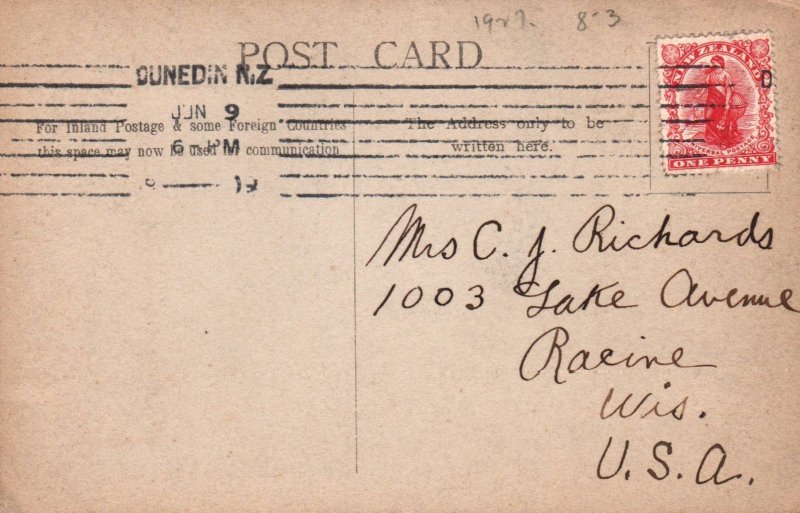 8-3
POST CARD
NEW ZEALAND
UNIVERSAL POSTAGE
ONE PENNY
D
DUNEDIN N.Z
JUN 9
6 - PM
For Inland Postage & some Foreign Countries
this space may now be used for communication
The Address only to be
written here.
Mrs C. J. Richards
1003 Lake Avenue
Racine
Wis.
U.S.A.